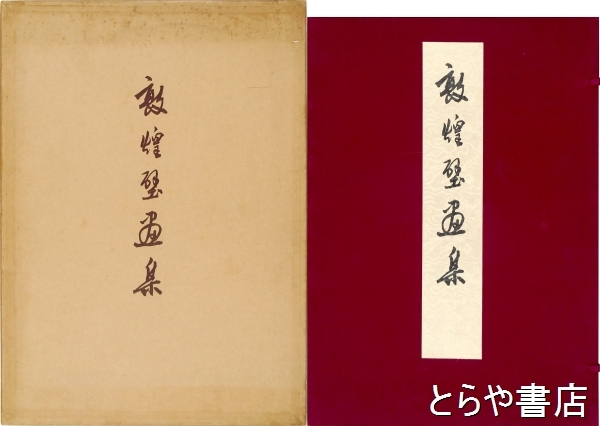 敦煌壁画集
敦煌壁画集
とらや書店